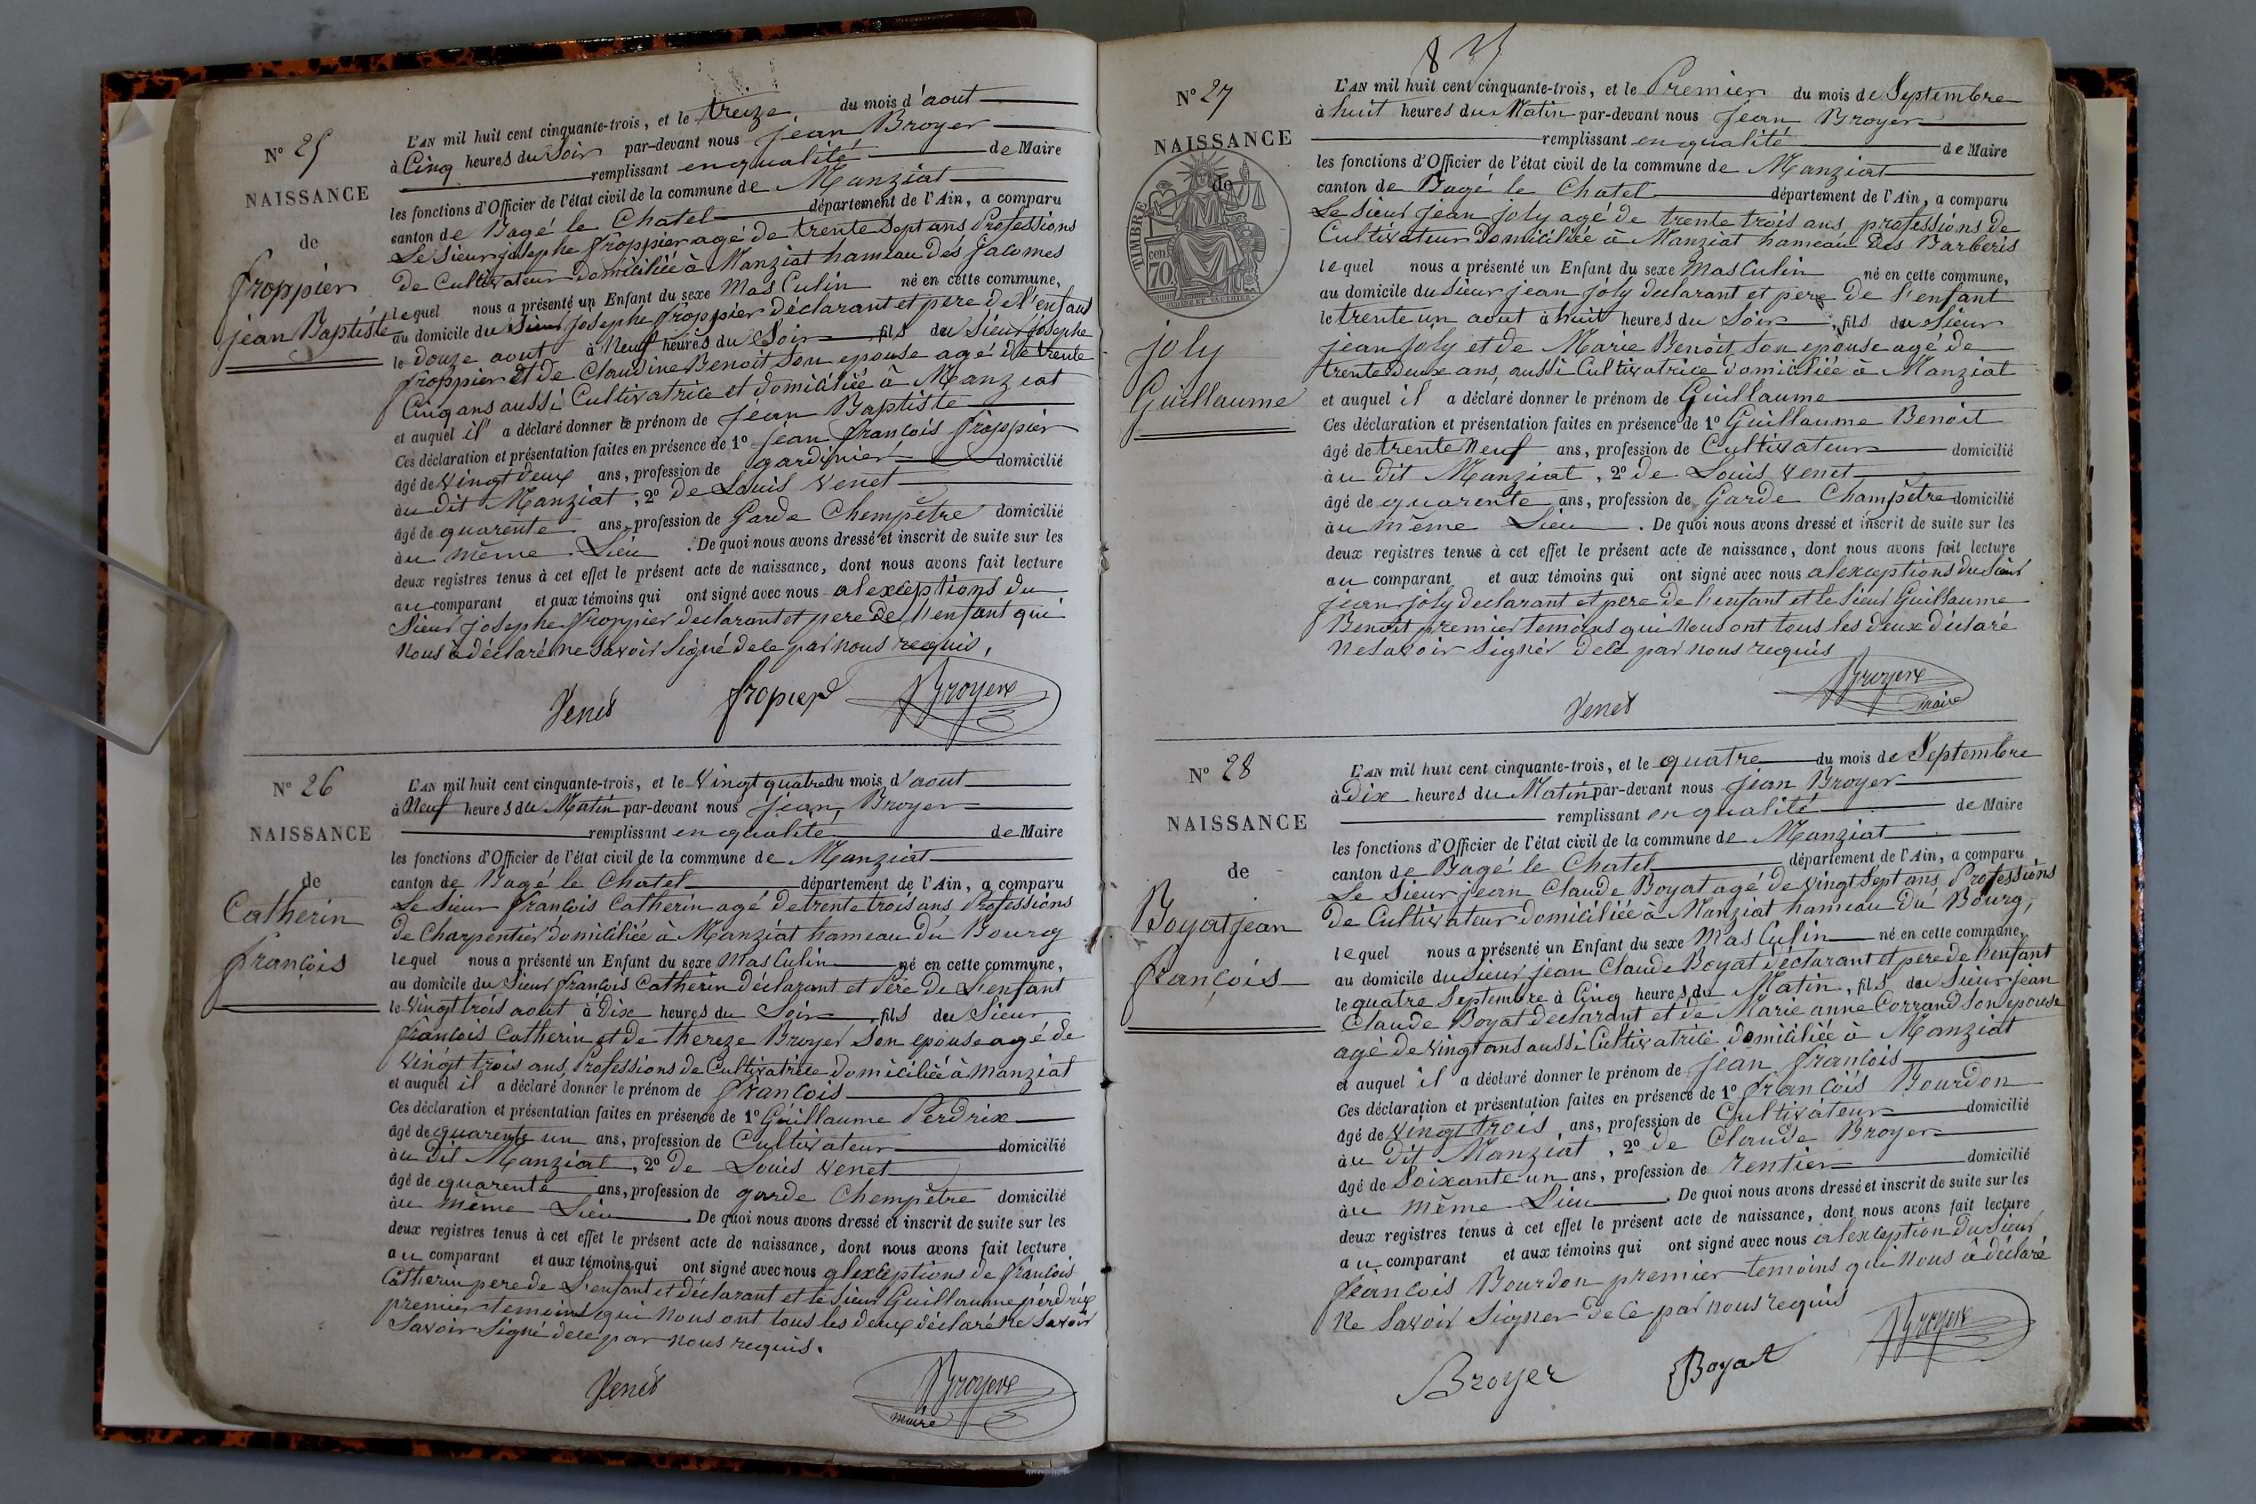 N° 25
NAISSANCE
de
froppier
jean Baptiste
L'AN mil huit cent cinquante-trois, et le treize du mois d'aout
à Cinq heures du Soir par-devant nous jean Broyer
remplissant en qualité de Maire
les fonctions d'Officier de l'état civil de la commune de Manziat
canton de Bagé le Chatel département de l'Ain, a comparu
Le Sieur josephe froppier agé de trente Sept ans Professions
De Cultivateur domiciliée à Manziat hameau des Jacomes
lequel nous a présenté un Enfant du sexe Masculin né en cette commune,
au domicile du Sieur josephe froppier déclarant et pere De l'enfant
le douze aout à Neuf heures du Soir fils du Sieur josephe
froppier et de Claudine Benoit Son epouse agé de trente
Cinq ans aussi Cultivatrice et domiciliée à Manziat
et auquel il a déclaré donner le prénom de jean Baptiste
Ces déclaration et présentation faites en présence de 1° jean francois froppier
âgé de vingt deux ans, profession de gardinier domicilié
àu dit Manziat, 2° de Louis Venet
âgé de quarente ans, profession de Garde Chempêtre domicilié
àu même Lieu. De quoi nous avons dressé et inscrit de suite sur les
deux registres tenus à cet effet le présent acte de naissance, dont nous avons fait lecture
au comparant et aux témoins qui ont signé avec nous alexceptions du
Sieur josephe froppier declarant et pere de l'enfant qui
Nous à déclaré ne Savoir Signé dece par nous requis,
Venet fropier Broyer
N° 26
NAISSANCE
de
Catherin
françois
L'AN mil huit cent cinquante-trois, et le Vingt quatre du mois d'aout
à Neuf heures du Matin par-devant nous jean Broyer
remplissant en qualité de Maire
les fonctions d'Officier de l'état civil de la commune de Manziat
canton de Bagé le Chatel département de l'Ain, a comparu
Le Sieur francois Catherin agé De trente trois ans Professions
de Charpentier domiciliée à Manziat hameau du Bourg
lequel nous a présenté un Enfant du sexe Masculin né en cette commune,
au domicile du Sieur francois Catherin déclarant et Père De L'enfant
le Vingt trois aout à Dix heures du Soir fils du Sieur
francois Catherin et de thereze Broyer Son epouse agé de
Vingt trois ans, Professions de Cultivatrice domiciliée à Manziat
et auquel il a déclaré donner le prénom de francois
Ces déclaration et présentation faites en présence de 1° Guillaume Perdrix
âgé de quarente un ans, profession de Cultivateur domicilié
àu dit Manziat, 2° de Louis Venet
âgé de quarente ans, profession de garde Chempêtre domicilié
àu même Lieu. De quoi nous avons dressé et inscrit de suite sur les
deux registres tenus à cet effet le présent acte de naissance, dont nous avons fait lecture
au comparant et aux témoins qui ont signé avec nous alexceptions de francois
Catherin pere de L'enfant et déclarant et le Sieur Guillaume perdrix
premier temoins qui Nous ont tous les deux déclaré Ne Savoir
Savoir Signé dece par nous requis.
Venet Broyer
maire
8
N° 27
NAISSANCE
de
TIMBRE
70
joly
Guillaume
L'AN mil huit cent cinquante-trois, et le Premier du mois de Septembre
à huit heures du Matin par-devant nous jean Broyer
remplissant en qualité de Maire
les fonctions d'Officier de l'état civil de la commune de Manziat
canton de Bagé le Chatel département de l'Ain, a comparu
Le Sieur jean joly agé de trente trois ans professions de
Cultivateur Domiciliée à Manziat hameau Des Barberis
lequel nous a présenté un Enfant du sexe Masculin né en cette commune,
au domicile du Sieur jean joly declarant et pere De l'enfant
le trente un aout à huit heures du Soir, fils du Sieur
jean joly et de Marie Benoit Son epouse agé de
trente deux ans, aussi Cultivatrice domiciliée à Manziat
et auquel il a déclaré donner le prénom de Guillaume
Ces déclaration et présentation faites en présence de 1° Guillaume Benoit
âgé de trente Neuf ans, profession de Cultivateur domicilié
àu dit Manziat, 2° de Louis Venet
âgé de quarente ans, profession de Garde Champêtre domicilié
àu même Lieu. De quoi nous avons dressé et inscrit de suite sur les
deux registres tenus à cet effet le présent acte de naissance, dont nous avons fait lecture
au comparant et aux témoins qui ont signé avec nous alexceptions du Sieur
jean joly declarant et pere De l'enfant et le Sieur Guillaume
Benoit premier temoins qui Nous ont tous les deux déclaré
Ne Savoir Signér dece par nous requis
Venet Broyer
maire
N° 28
NAISSANCE
de
Boyat jean
françois
L'AN mil huit cent cinquante-trois, et le quatre du mois de Septembre
à Dix heures du Matin par-devant nous jean Broyer
remplissant en qualité de Maire
les fonctions d'Officier de l'état civil de la commune de Manziat
canton de Bagé le Chatel département de l'Ain, a comparu
Le Sieur jean Claude Boyat agé de vingt Sept ans Professions
De Cultivateur domiciliée à Manziat hameau Du Bourg,
lequel nous a présenté un Enfant du sexe Masculin né en cette commune,
au domicile du Sieur jean Claude Boyat déclarant et pere de l'enfant
le quatre Septembre à Cinq heures du Matin, fils du Sieur Jean
Claude Boyat declarant et de Marie anne Corrand Son epouse
agé de vingt ans aussi Cultivatrice domiciliée à Manziat
et auquel il a déclaré donner le prénom de jean francois
Ces déclaration et présentation faites en présence de 1° francois Bourdon
âgé de vingt trois ans, profession de Cultivateur domicilié
àu dit Manziat, 2° de Claude Broyer
âgé de Soixante un ans, profession de rentier domicilié
àu même Lieu. De quoi nous avons dressé et inscrit de suite sur les
deux registres tenus à cet effet le présent acte de naissance, dont nous avons fait lecture
au comparant et aux témoins qui ont signé avec nous alexception du Sieur
francois Bourdon premier temoins qui Nous à déclaré
Ne Savoir Signer De ce par nous requis
Broyer Boyat Broyer